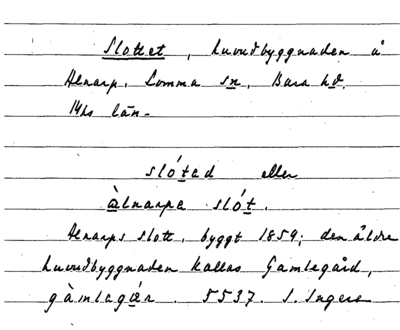 Slottet, huvudbyggnaden å
Alnarp, Lomma sn, Bara hd.
Mhs län.
slo´tad eller
àlnarpa slo´t.
Alnarps slott, byggt 1859; den äldre
huvudbyggnaden kallas Gamlegård,
gàmlagår. 5537. I. Ingers